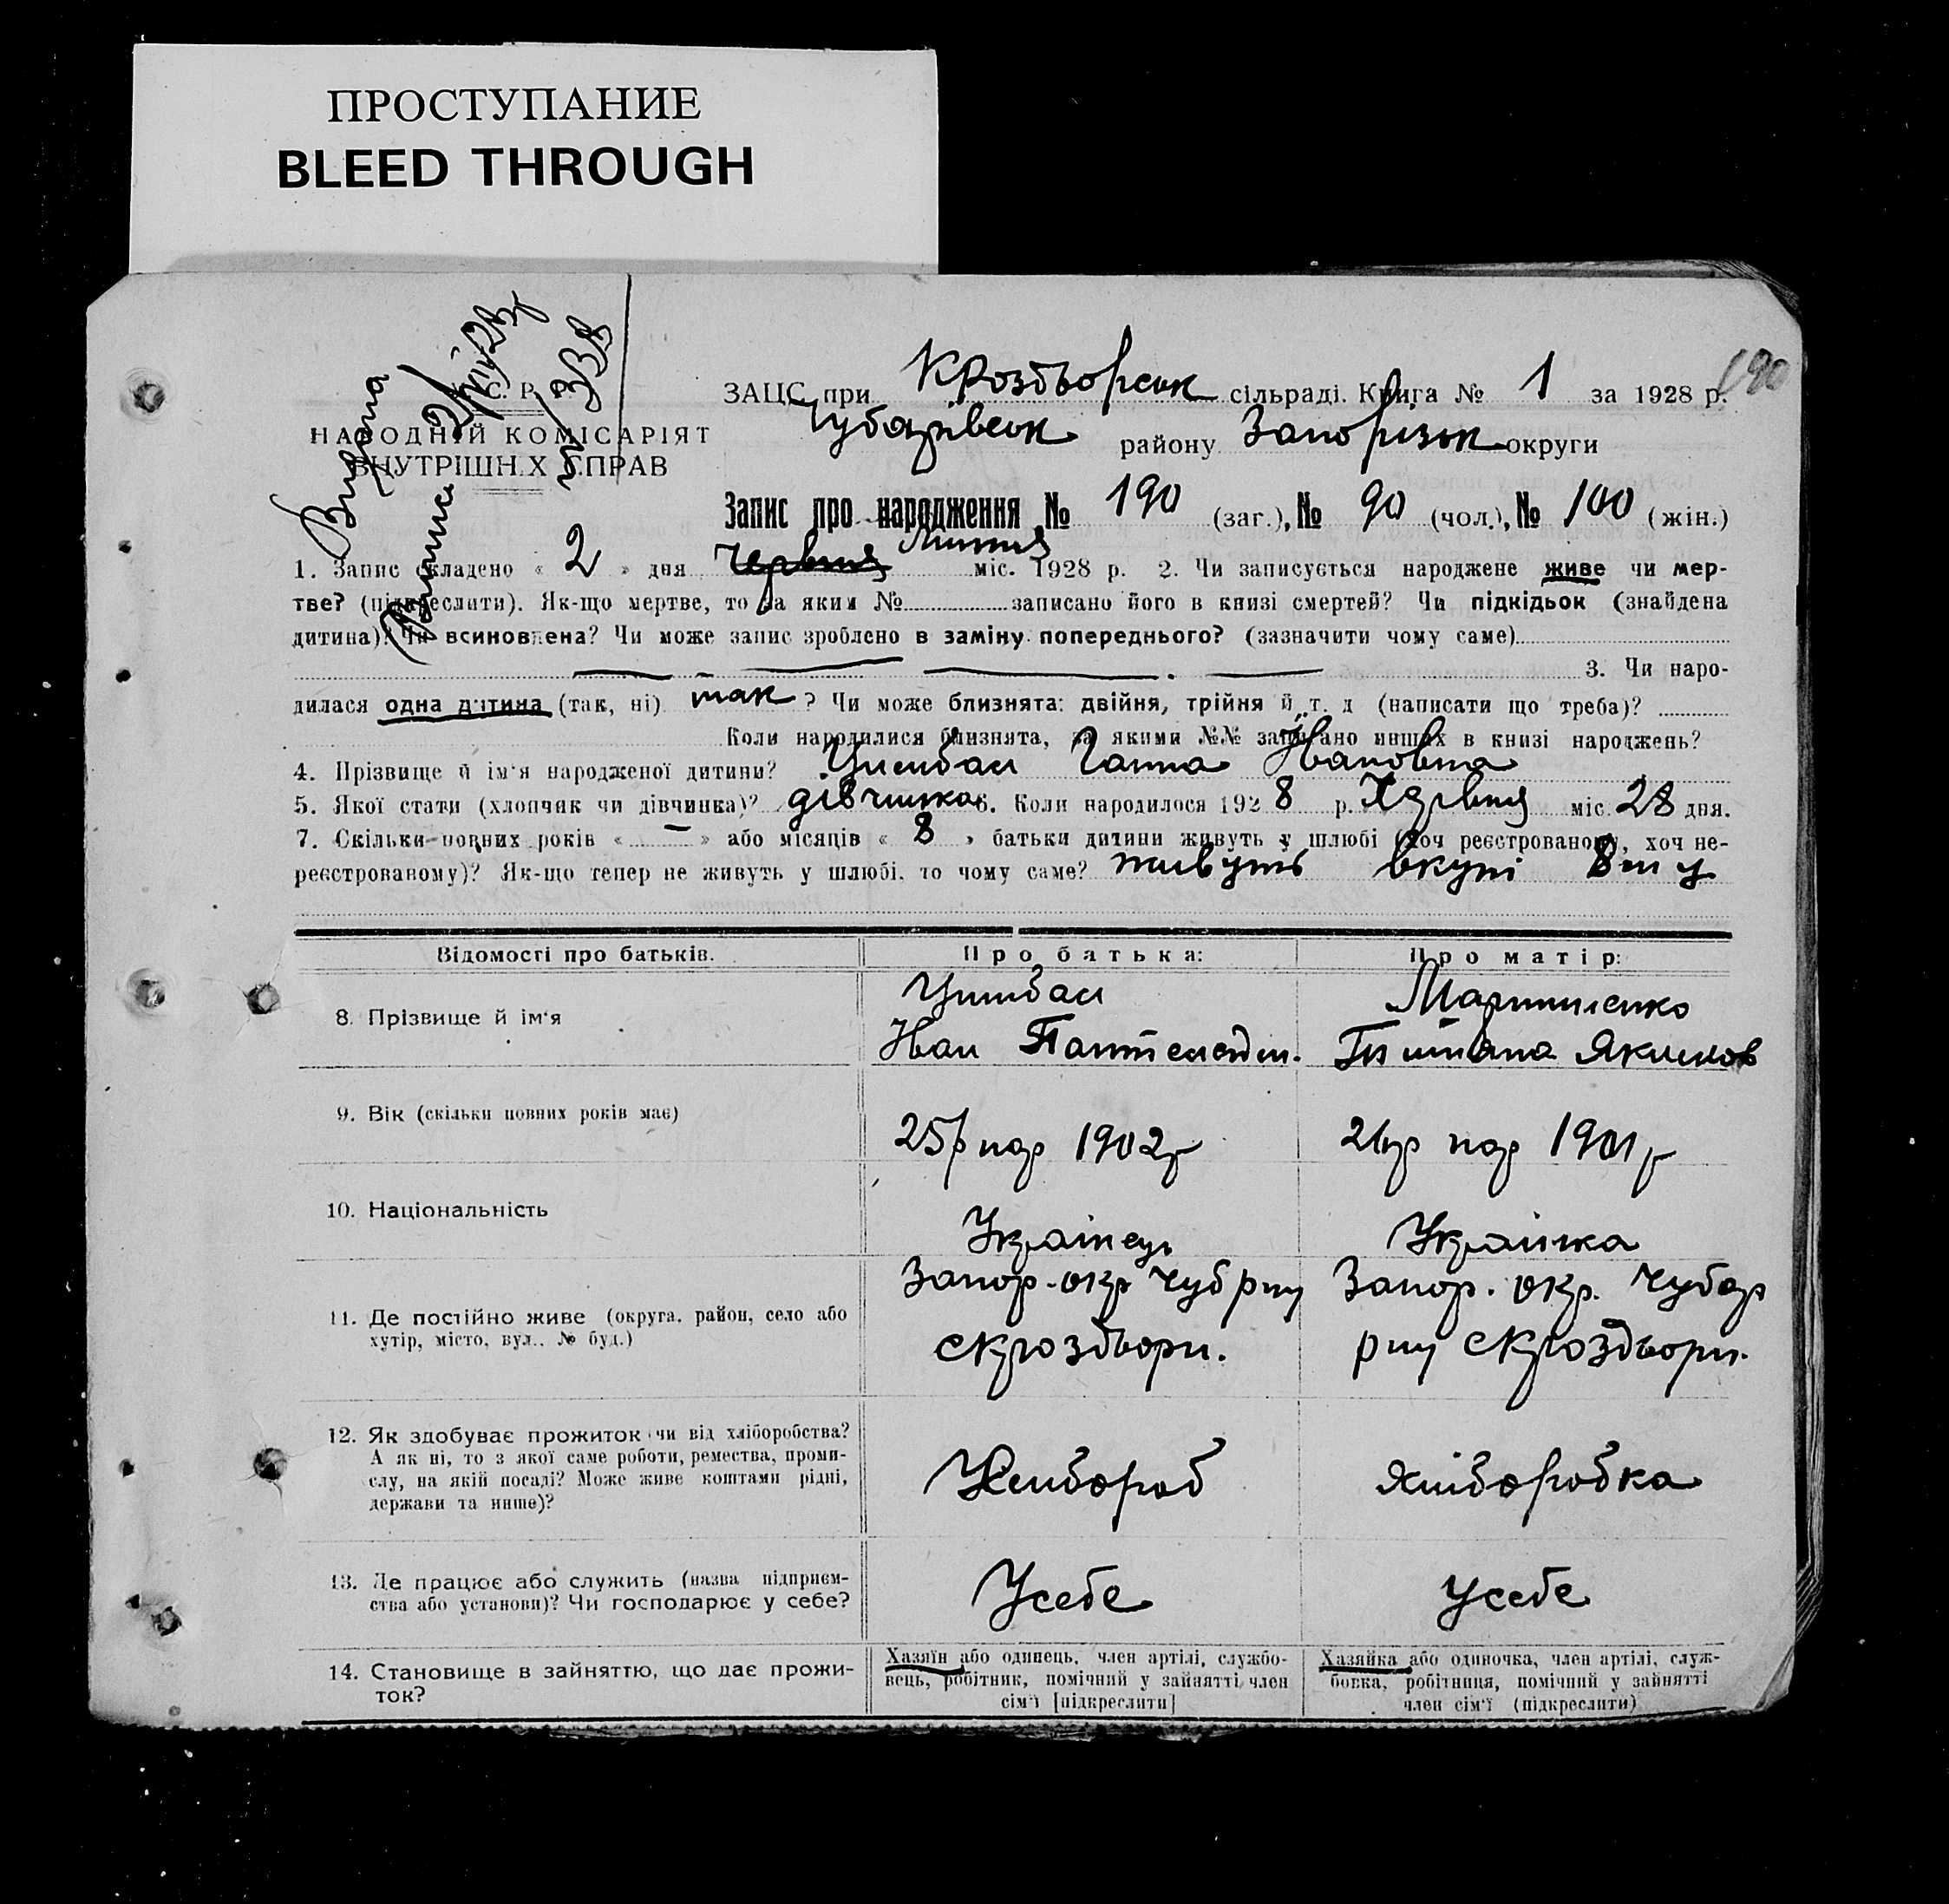 ПРОСТУПАНИЕ
BLEED THROUGH
190
У. С. Р. Р.
НАРОДНІЙ КОМІСАРІЯТ
ВНУТРІШНІХ СПРАВ
Видана
ЗАЦС при Кроздворськ сільраді. Книга № 1 за 1928 р.
Чубарівськ району Запорізьк округи
Запис про народження № 190 (заг.), № 90 (чол.), № 100 (жін.)
Липня
1. Запис складено « 2 » дня Червня міс. 1928 р. 2. Чи записується народжене живе чи мер-
тве? (підкреслити). Як-що мертве, то за яким № записано його в книзі смертей? Чи підкідьок (знайдена
дитина)? Чи всиновлена? Чи може запис зроблено в заміну попереднього? (зазначити чому саме)
3. Чи наро-
дилася одна дитина (так, ні) так ? Чи може близнята: двійня, трійня й т. д (написати що треба)?
Коли народилися близнята, за якими №№ записано инших в книзі народжень?
4. Прізвище й ім'я народженої дитини? Цимбал Ганна Йвановна
5. Якої стати (хлопчик чи дівчинка)? дівчинка 6. Коли народилося 1928 р. Червня міс. 28 дня.
7. Скільки повних років « — » або місяців « 8 » батьки дитини живуть у шлюбі (хоч реєстрованому, хоч не-
реєстрованому)? Як-що тепер не живуть у шлюбі, то чому саме? живуть вкупі
Відомості про батьків. Про батька: Про матір:
8. Прізвище й ім'я
Цимбал
Йван Пантелейм.
Мартиненко
Титяна Якимов
9. Вік (скільки повних років має)
25р нар 1902р
26р нар 1901р
10. Національність
Українець
Українка
11. Де постійно живе (округа, район, село або
хутір, місто, вул., № буд.)
Запор. окр Чуб рну
с Кроздвори.
Запор. окр. Чубар
рну с Кроздвори.
12. Як здобуває прожиток чи від хліборобства?
А як ні, то з якої саме роботи, ремества, проми-
слу, на якій посаді? Може живе коштами рідні,
держави та инше)?
Хлибороб
Хліборобка
13. Де працює або служить (назва підприєм-
ства або установи)? Чи господарює у себе?
Усебе
Усебе
14. Становище в зайняттю, що дає прожи-
ток?
Хазяїн або одинець, член артілі, службо-
вець, робітник, помічний у зайнятті член
сім'ї [підкреслити]
Хазяйка або одиночка, член артілі, служ-
бовка, робітниця, помічний у зайнятті
член сім'ї (підкреслити)